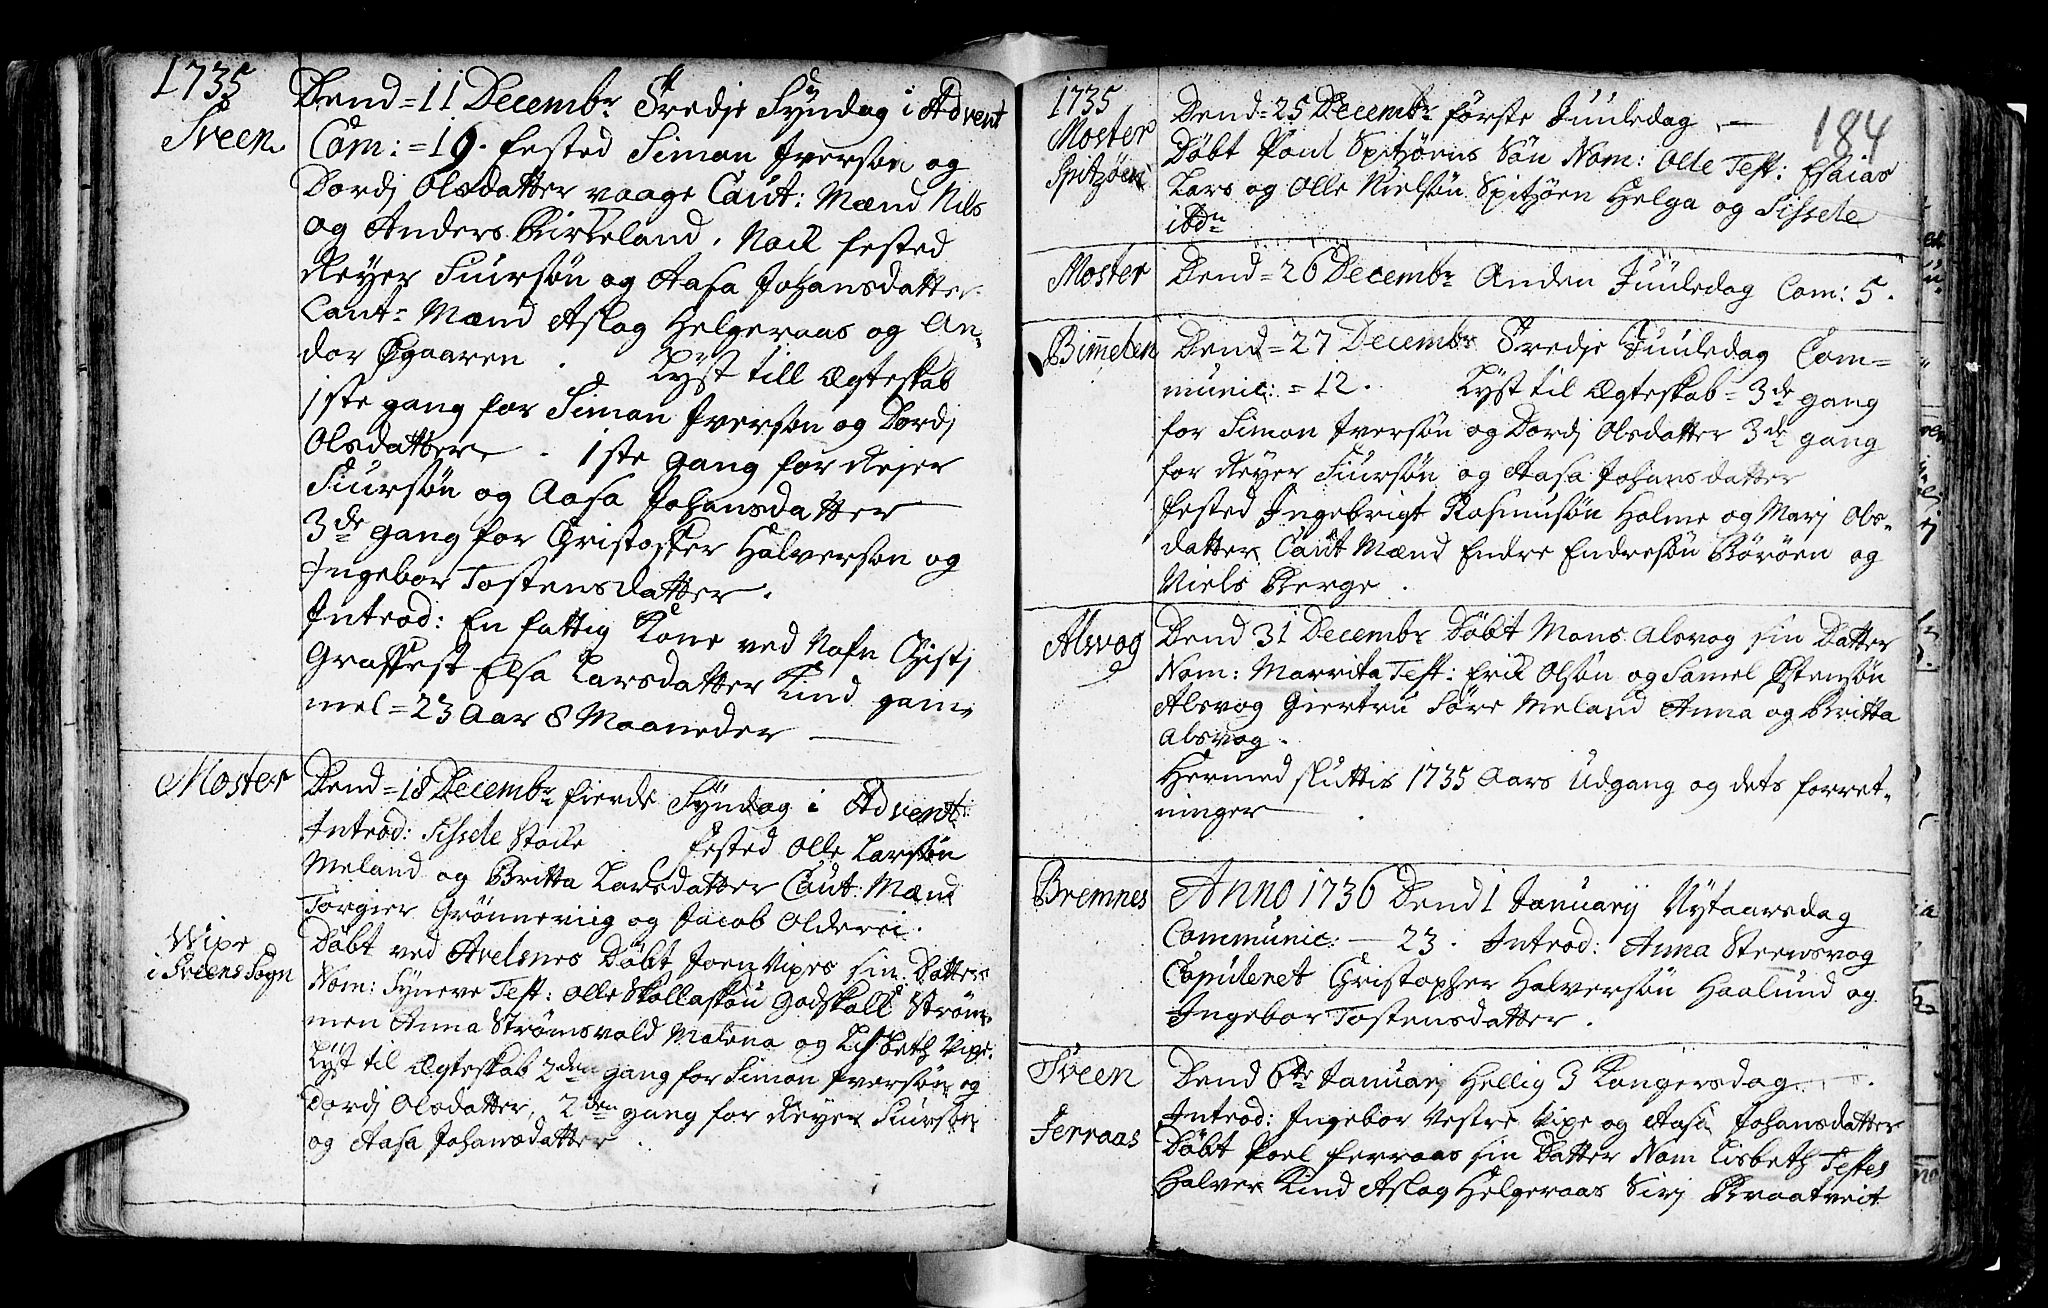 1735
Sveen
Dend = 11 Decembr Tredje Syndag i Advent
Com: = 19. fested Simon Iversøn og
Dordj Olsdatter vaage Caut: Mænd Nils
og Anders Birkeland. Nock fested
Reyer Siursøn og Aasa Johansdatter
Caut = Mænd Aslag Helgeraas og An-
dor Øgaaren. Lyst till Ægteskab
1ste gang for Simon Iversøn og Dordj
Olsdatter. 1ste gang for Rejer
Siursøn og Aasa Johansdatter
3de gang for Christopher Halversøn og
Ingebor Tostensdatter.
Introd: En fattig Kone ved Nafn Chistj
Elsa Larsdatter Kind gam-
mel = 23 Aar 8 Maaneder
Moster
Dend = 18 Decembr fierde Syndag i Advent
Introd: Sissele Stocke fested Olle Larsøn
Meland og Britta Larsdatter Caut: Mænd
Torgier Grønneviig og Jacob Olderei.
Wixe
i Sveens Sogn
Døbt ved Avelsnes Døbt Joen Vixes sin Datter
Nom: Syneve Test: Olle Godskalk Strøm-
men Anna Strømsvold Malena og Lisbeth Vixe.
Lyst til Ægteskab 2den gang for Simon Iversøn og
Dordj Olsdatter, 2den gang for Reyer Siursøn
og Aasa Johansdatter.
184
1735
Moster
Spitzøen
Dend = 25 Decembr første Juuledag
Døbt Poul Spitzøens Søn Nom: Olle Test: Esaias
Lars og Olle Nielsøn Spitzøen Helga og Sissele
ibdn
Moster
Dend = 26 Decembr Anden Juuledag Com: 5.
Bim̄elen
Dend = 27 Decembr Tredje Juuledag Com=
munic: = 12. Lyst til Ægteskab = 3de gang
for Simon Iversøn og Dordj Olsdatter 3de gang
for Reyer Siursøn og Aasa Johansdatter
fested Ingebrigt Rasmusøn Holme og Marj Ols-
datter Caut Mænd Endre Endresøn Børøen og
Niels Berge.
Alsvog
Dend 31 Decembr Døbt Mons Alsvog sin Datter
Nom: Marrita Test: Erik Olsøn og Samel Østensøn
Alsvog Giertru Søre Meland Anna og Britta
Alsvog.
Hermed sluttis 1735 Aars Udgang og dets forret-
ninger
Bremnes
Anno 1736 Dend 1 Januarij Nytaarsdag
Communic: — 23. Introd: Anna Steensvog
Copuleret Christopher Halversøn Haalund og
Ingebor Tostensdatter.
Sveen
Dend 6te Januarj Hellig 3 Kongersdag
Introd: Ingebor Vestre Vixe og Aasa Johansdatter
Ferraas
Døbt Poel Ferraas sin Datter Nom Lisbeth Testes
Halver Kind Aslag Helgeraas Sirj Braatveit